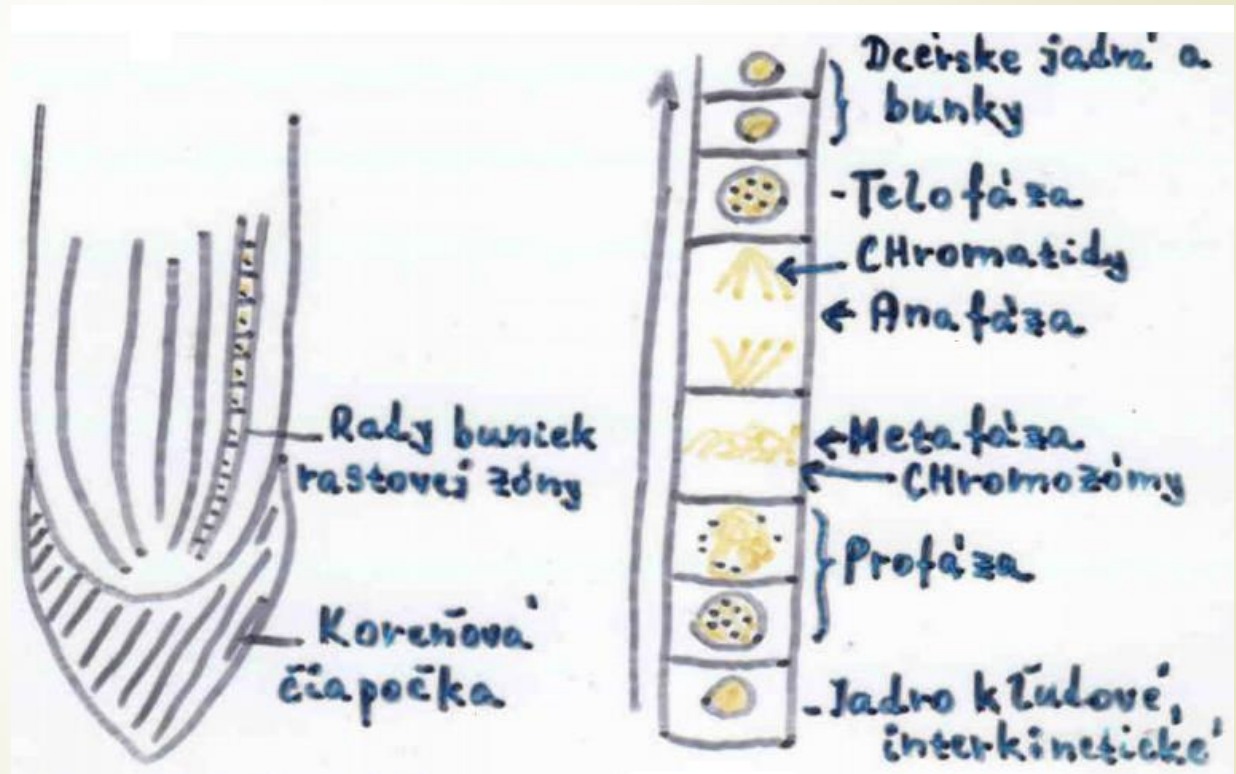 Rady buniek
rastovej zóny
Koreňová
čiapočka
Dcérske jadrá a
bunky
-Telofáza
CHromatidy
Anafáza
Metafáza
CHromozómy
Profáza
-Jadro kľudové,
interkinetické